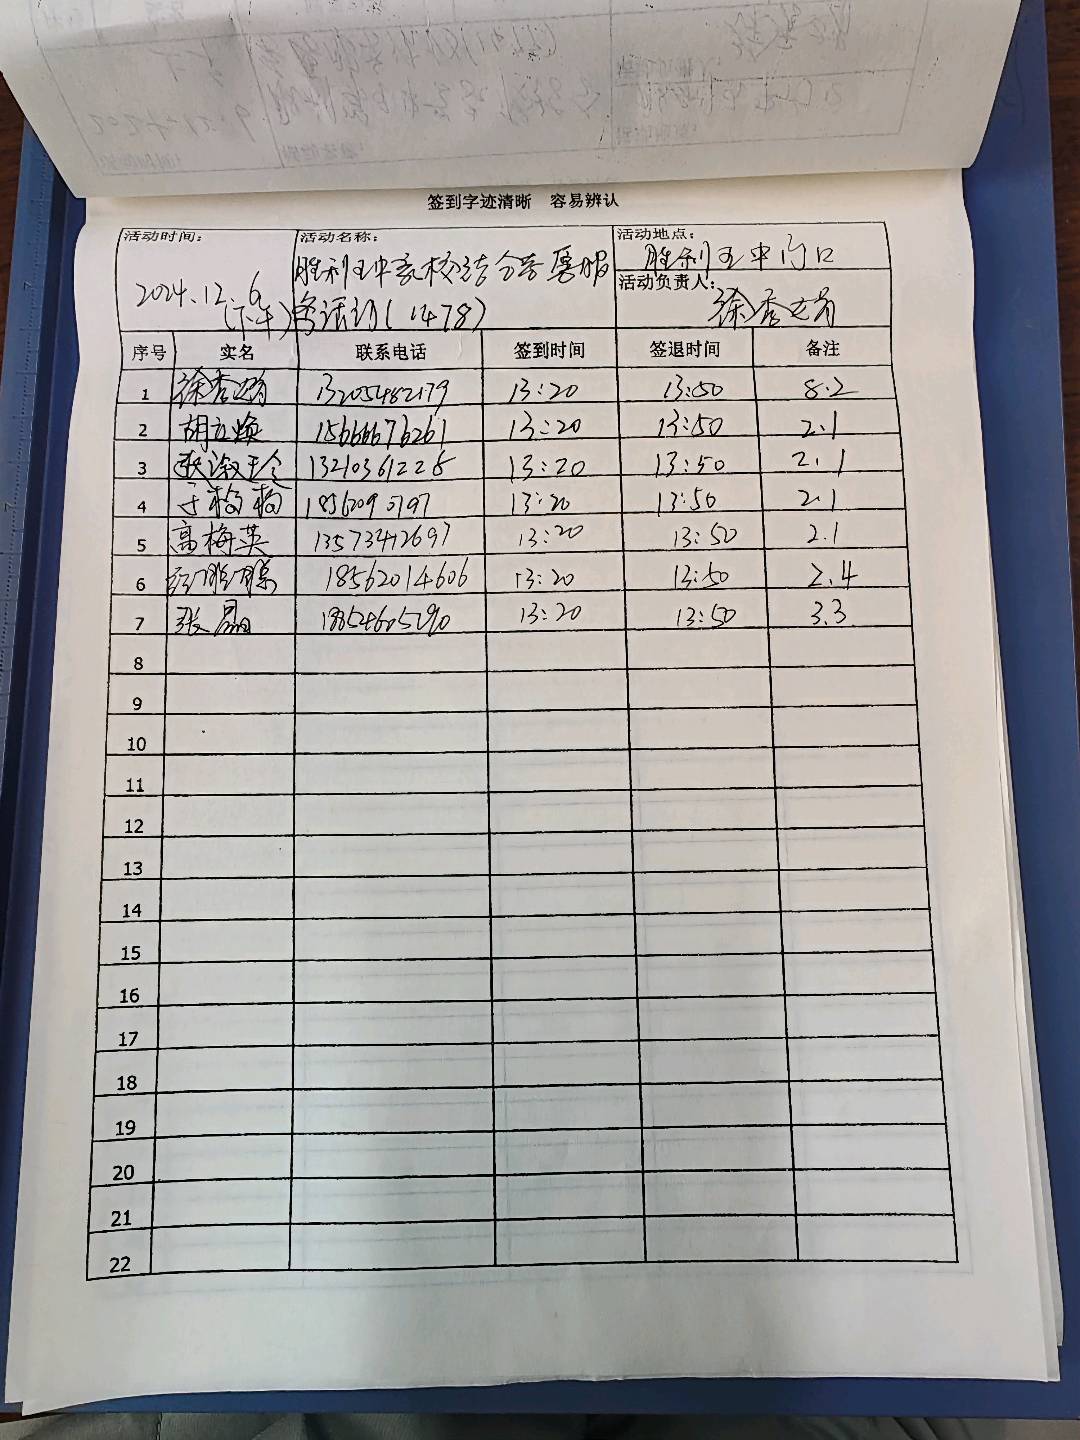 签到字迹清晰 容易辨认
活动时间： 活动名称： 活动地点：
胜利五中 胜利五中门口
2024.12.6 活动负责人：
(下午) (1478) 徐秀
序号 实名 联系电话 签到时间 签退时间 备注
1 徐秀 13205482179 13:20 13:50 8.2
2 胡立焕 15666676261 13:20 13:50 2.1
3 13210361228 13:20 13:50 2.1
4 于梅梅 1856209 0797 13:20 13:50 2.1
5 高梅英 13573412697 13:20 13:50 2.1
6 18562014606 13:20 13:50 2.4
7 张晶 18854605290 13:20 13:50 3.3
8
9
10
11
12
13
14
15
16
17
18
19
20
21
22